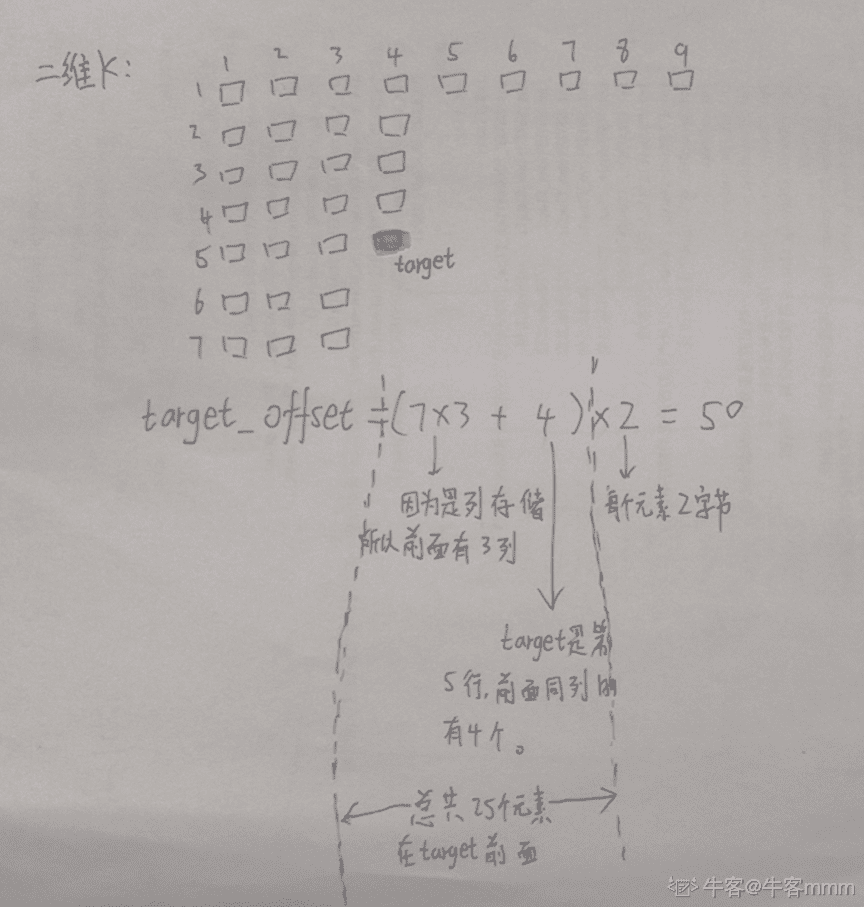 二维K:
1 2 3 4 5 6 7 8 9
1
2
3
4
5
target
6
7
target_offset=(7×3 + 4)×2 = 50
因为是列存储
所以前面有3列
每个元素2字节
target是第
5行,前面同列的
有4个。
总共25个元素
在target前面
牛客@牛客mmm